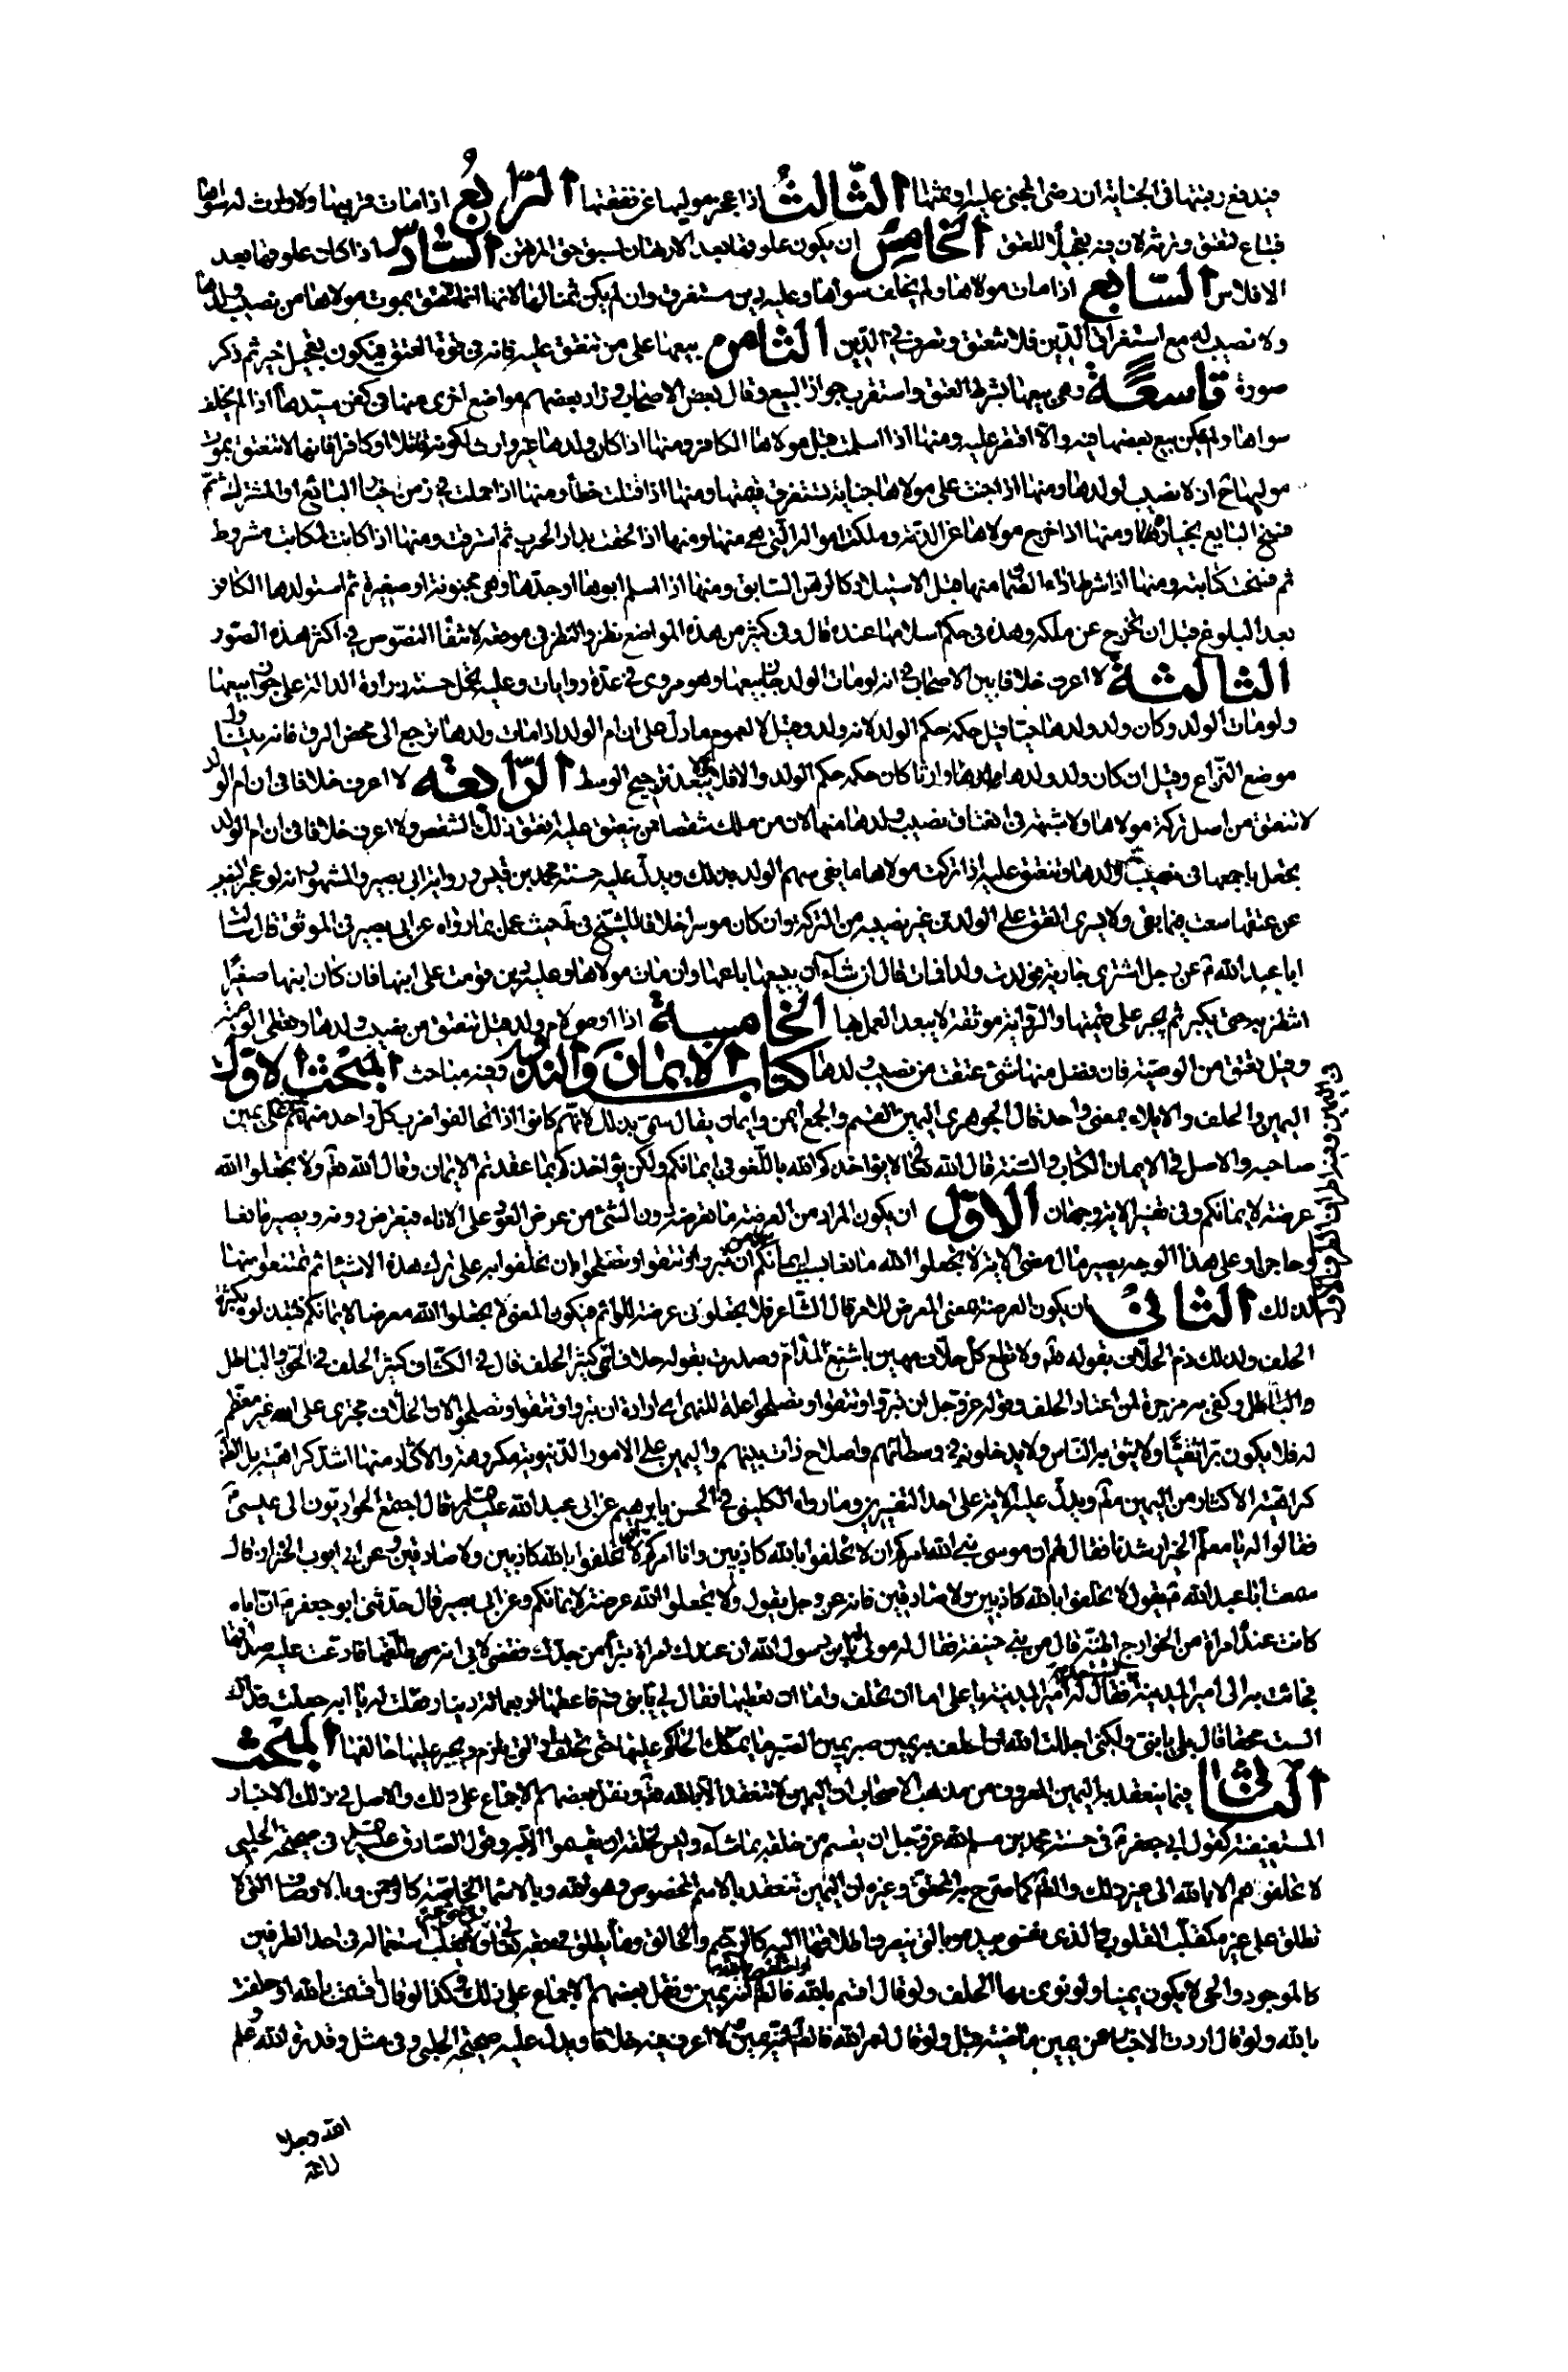 فيدفع رقبتها في الجناية ان رضي المجني عليه او ثمنها الثالث اذا عجز موليها عن نفقتها الرابع اذا مات قريبها ولا وارث له سواها
فتباع لتعتق وترثه لان فيه تعجيلا للعتق الخامس ان يكون علوقها بعد الارتهان لسبق حق المرتهن السادس اذا كان علوقها بعد
الافلاس السابع اذا مات مولاها ولم يخلف سواها وعليه دين مستغرق وان لم يكن ثمنا لها لانها انما تعتق بموت مولاها من نصيب ولدها
ولا نصيب له مع استغراق الدين فلا تنعتق وتصرف في الدين الثامن بيعها على من تنعتق عليه فانه في قوة العتق فيكون تعجيل خير ثم ذكر
صورة تاسعة وهي بيعها بشرط العتق واستقرب جواز البيع وقال بعض الاصحاب زاد بعضهم مواضع اخرى منها في كفن سيدها اذا لم يخلف
سواها ولم يمكن بيع بعضها فيه والا اقتصر عليه ومنها اذا اسلمت قبل مولاها الكافر ومنها اذا كان ولدها غير وارث لكونه قاتلا او كافرا فانها لا تنعتق بموت
موليها ح اذ لا نصيب لولدها ومنها اذا جنت على مولاها جناية تستغرق قيمتها ومنها اذا قتلت خطأ ومنها اذا حملت في زمن خيار البائع او المشترك ثم
فسخ البايع بخياره ومنها اذا خرج مولاها عن الذمة وملكت امواله التي هي منها ومنها اذا لحقت بدار الحرب ثم استرقت ومنها اذا كانت لمكاتب مشروط
ثم فسخت كتابته ومنها اذا شرط اداء الضمان منها قبل الاستيلاد كالرهن السابق ومنها اذا اسلم ابوها او جدها وهي مجنونة او صغيرة ثم استولدها الكافر
بعد البلوغ قبل ان تخرج عن ملكه وهذه في حكم اسلامها عنده قال وفي كثير من هذه المواضع نظر والنظر في موضعه لانتفاء النصوص في اكثر هذه الصور
الثالثة لا اعرف خلافا بين الاصحاب في انه لو مات الولد جاز بيعها وهو مروي في عدة روايات وعليه يحمل حسنة زرارة الدالة على جواز بيعها
ولو مات الولد وكان ولد ولدها حيا قيل حكمه حكم الولد لانه ولد وقيل لا لعموم ما دل على ان ام الولد اذا مات ولدها ترجع الى محض الرق فانه يتناول
موضع النزاع وقيل ان كان ولد ولدها وارثا كان حكمه حكم الولد والا فلا ولا يبعد ترجيح الوسط الرابعة لا اعرف خلافا في ان ام الولد
لا تنعتق من اصل تركة مولاها ولا شبهة في انعتاق نصيب ولدها منها لان من ملك شقصا ممن ينعتق عليه انعتق ذلك الشقص ولا اعرف خلافا في ان ام الولد
تجعل باجمعها في نصيب ولدها وتنعتق عليه اذا ترك مولاها ما يفي سهم الولد بذلك ويدل عليه حسنة محمد بن قيس ورواية ابي بصير والمشهور انه لو عجز النصيب
عن عتقها سعت فيما بقي ولا يسري العتق على الولد من غير نصيبه من التركة وان كان موسرا خلافا للشيخ في ط حيث عمل بما رواه عن ابي بصير في الموثق قال سالت
ابا عبد الله ع عن رجل اشترى جارية فولدت ولدا فمات قال ان شاء ان يبيعها باعها وان مات مولاها وعليه دين قومت على ابنها فان كان ابنها صغيرا
انتظر به حتى يكبر ثم يجبر على قيمتها والرواية موثقة لا يبعد العمل بها الخامسة اذا اوصى لام ولده قيل تنعتق من نصيب ولدها وتعطى الوصية
وقيل تعتق من الوصية فان فضل منها شئ عتقت من نصيب ولدها كتاب الايمان والنذور وفيه مباحث المبحث الاول
اليمين والحلف والايلاء بمعنى واحد قال الجوهري اليمين القسم والجمع ايمن وايمان يقال سمي بذلك لانهم كانوا اذا تحالفوا ضرب كل واحد منهم على يمين
صاحبه والاصل في الايمان الكتاب والسنة قال الله تعالى لا يؤاخذكم الله باللغو في ايمانكم ولكن يؤاخذكم بما عقدتم الايمان وقال الله تعالى ولا تجعلوا الله
عرضة لايمانكم وفي تفسير الاية وجهان الاول ان يكون المراد من العرضة ما تعرضه دون الشئ من عرض العود على الاناء فيعترض دونه ويصير مانعا
وحاجزا وعلى هذا الوجه يصير مال معنى الاية لا تجعلوا الله مانعا بسبب ايمانكم من ان تبروا او تتقوا او تصلحوا بان تحلفوا به على ترك هذه الاشياء ثم تمتنعوا منها
لذلك الثاني ان يكون العرضة بمعنى المعرض للامر قال الشاعر فلا تجعلوني عرضة للوائم فيكون المعنى لا تجعلوا الله معرضا لايمانكم فتبتذلوه بكثرة
الحلف ولذلك ذم الحلاف بقوله تعالى ولا تطع كل حلاف مهين باشنع المذام وصدرت بقوله حلاف اي كثير الحلف قال في الكشاف كثير الحلف في الحق والباطل
والباطل وكفى به مزجرة لمن اعتاد الحلف وقوله عز وجل ان تبروا وتتقوا وتصلحوا علة للنهي اي ارادة ان تبروا وتتقوا وتصلحوا لان الحلاف مجترئ على الله غير معظم
له فلا يكون برا متقيا ولا يثق به الناس ولا يدخلونه في وسطاتهم واصلاح ذات بينهم واليمين على الامور الدنيوية مكروهة والاكثار منها اشد كراهية بل الظ
كراهية الاكثار من اليمين مط ويدل عليه الاية على احد التفسيرين وما رواه الكليني في الحسن بابرهيم عن ابي عبد الله عليه السلام قال اجتمع الحواريون الى عيسى ع
فقالوا له يا معلم الخير ارشدنا فقال لهم ان موسى نبي الله امركم ان لا تحلفوا بالله كاذبين وانا امركم ان لا تحلفوا بالله كاذبين ولا صادقين وعن ابي ايوب الخزاز قال
سمعت ابا عبد الله ع يقول لا تحلفوا بالله كاذبين ولا صادقين فانه عز وجل يقول ولا تجعلوا الله عرضة لايمانكم وعن ابي بصير قال حدثني ابو جعفر ع ان اباه
كانت عنده امراة من الخوارج اظنه قال من بني حنيفة فقال له مولى له يا بن رسول الله ان عندك امراة تبرأ من جدك فقضى لابي انه طلقها فادعت عليه صداقها
فجائت به الى امير المدينة تستعديه فقال له امير المدينة يا علي اما ان تحلف واما ان تعطيها فقال لي يا بني قم فاعطها اربعمائة دينار فقلت له يا ابه جعلت فداك
الست محقا قال بلى يا بني ولكني اجللت الله ان احلف به يمين صبر يمين الصبر ما يمسك الحاكم عليها حتى تحلف او التي تلزم ويجبر عليها حالفها المبحث
الثاني فيما ينعقد به اليمين المعروف من مذهب الاصحاب ان اليمين لا تنعقد الا بالله تعالى ونقل بعضهم الاجماع على ذلك والاصل في ذلك الاخبار
المستفيضة كقول ابي جعفر ع في حسنة محمد بن مسلم لله عز وجل ان يقسم من خلقه بما شاء وليس لخلقه ان يقسموا الا به وقول الصادق عليه السلام في صحيحة الحلبي
لا تحلفوهم الا بالله الى غير ذلك والظ كما صرح به المحقق وغيره ان اليمين تنعقد بالاسم المخصوص وهو الله وبالاسماء الخاصة كالرحمن وبالاوصاف التي لا
تطلق على غيره كمقلب القلوب والذي نفسي بيده وبالتي ينصرف اطلاقها اليه كالرحيم والخالق وما يطلق في حقه تعالى وفي حق غيره ولا يغلب استعماله في احد الطرفين
كالموجود والحي لا يكون يمينا ولو نوى بها الحلف ولو قال اقسم بالله فالظ انه يمين ونقل بعضهم الاجماع على ذلك وكذا لو قال اقسمت بالله او حلفت
بالله ولو قال اردت الاخبار عن يمين ماضية قبل ولو قال لعمر الله فالظ انه يمين لا اعرف فيه خلافا ويدل عليه صحيحة الحلبي وفي مثل وقدرة الله وعلم